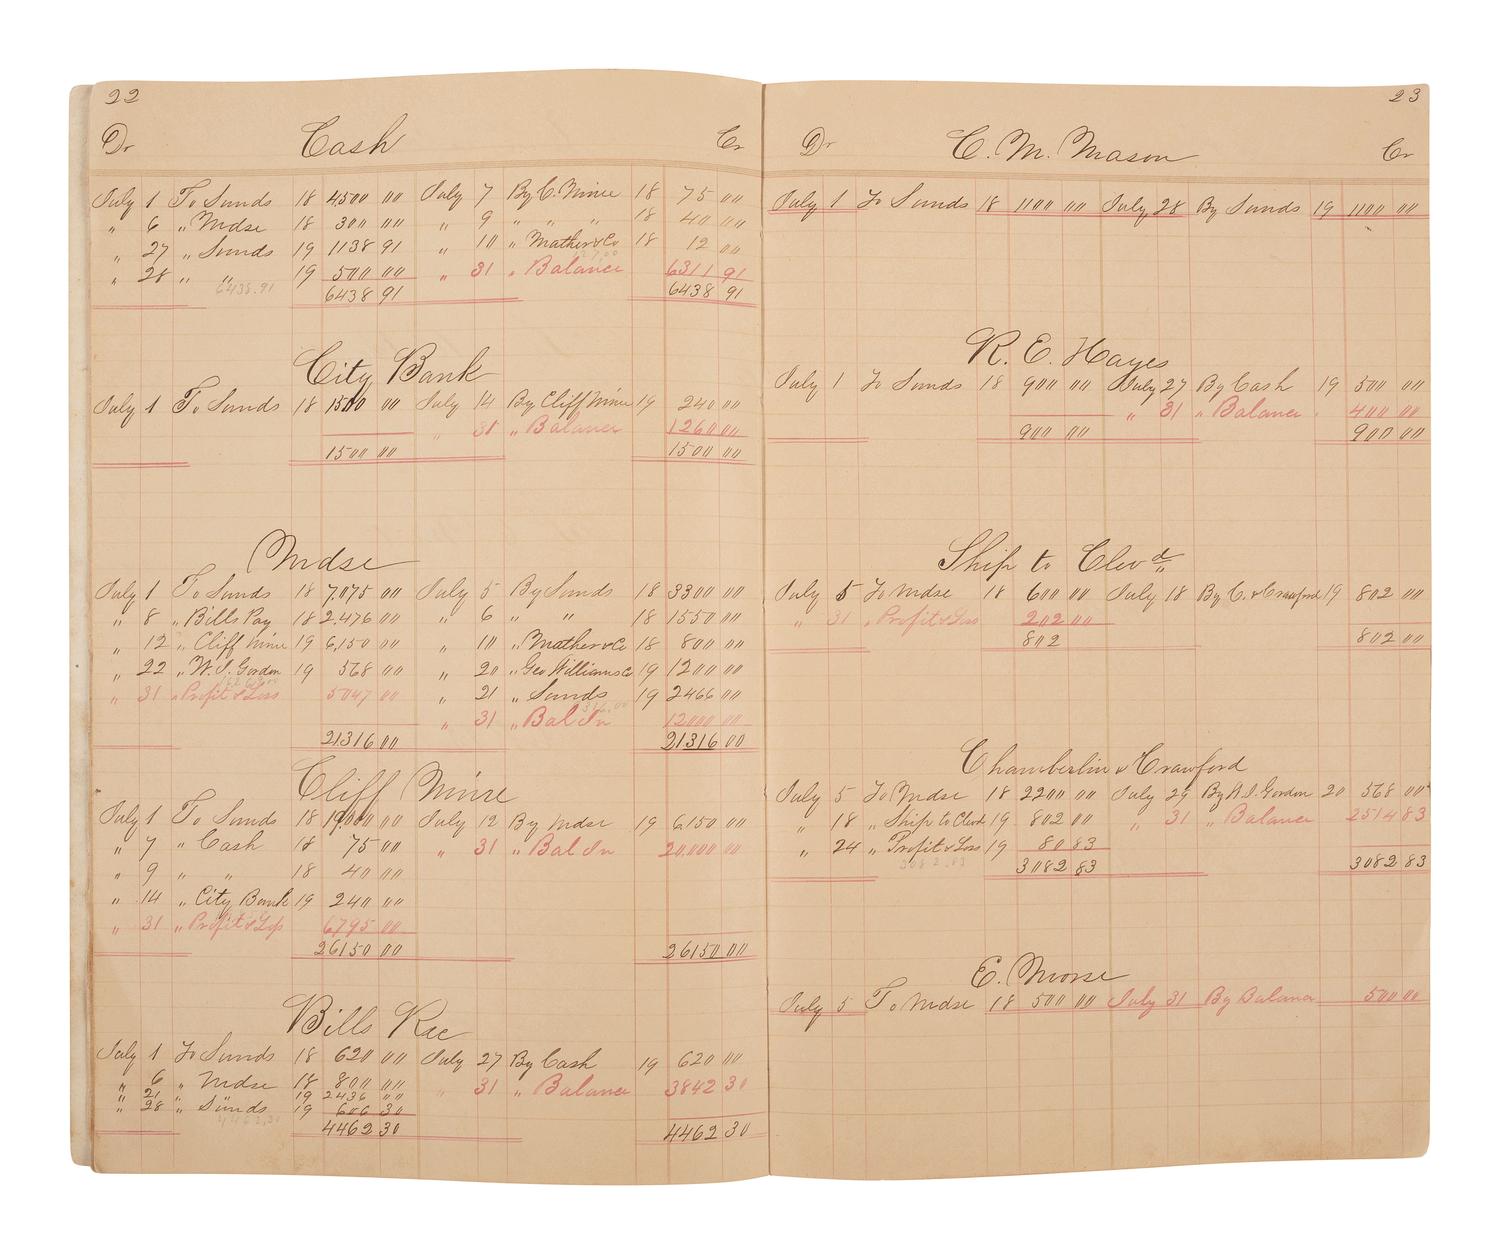 22
Dr Cash Cr
July 1 To Sunds 18 4500 00 July 7 By C. Mine 18 75 00
" 6 " Mdse 18 300 00 " 9 " " " 18 40 00
" 27 " Sunds 19 1138 91 " 10 " Mather & Co 18 12 00
" 28 " " 19 500 00 " 31 " Balance 6311 91
6438.91 6438 91 6438 91
City Bank
July 1 To Sunds 18 1500 00 July 14 By Cliff Mine 19 240 00
" 31 " Balance 1260 00
1500 00 1500 00
Mdse
July 1 To Sunds 18 7,075 00 July 5 By Sunds 18 3300 00
" 8 " Bills Pay 18 2,476 00 " 6 " " 18 1550 00
" 12 " Cliff Mine 19 6,150 00 " 10 " Mather & Co 18 800 00
" 22 " W. S. Gordon 19 568 00 " 20 " Geo Williams Co 19 1200 00
" 31 " Profit & Loss 5047 00 " 21 " Sunds 19 2466 00
" 31 " Bal In 12000 00
21316 00 21316 00
Cliff Mine
July 1 To Sunds 18 19,000 00 July 12 By Mdse 19 6150 00
" 7 " Cash 18 75 00 " 31 " Bal In 20,000 00
" 9 " " 18 40 00
" 14 " City Bank 19 240 00
" 31 " Profit & Loss 6795 00
26150 00 26150 00
Bills Rec
July 1 To Sunds 18 620 00 July 27 By Cash 19 620 00
" 6 " Mdse 18 800 00 " 31 " Balance 3842 30
" 21 " " 19 2436 00
" 28 " Sunds 19 606 30
4462.30 4462 30 4462 30
23
Dr C. M. Mason Cr
July 1 To Sunds 18 1100 00 July 28 By Sunds 19 1100 00
R. E. Hayes
July 1 To Sunds 18 900 00 July 27 By Cash 19 500 00
" 31 " Balance 400 00
900 00 900 00
Ship to Clevd
July 5 To Mdse 18 600 00 July 18 By C. & Crawford 19 802 00
" 31 " Profit & Loss 202 00
802 802 00
Chamberlin & Crawford
July 5 To Mdse 18 2200 00 July 29 By W. S. Gordon 20 568 00
" 18 " Ship to Clevd 19 802 00 " 31 " Balance 2514 83
" 24 " Profit & Loss 19 80 83
3082.83 3082 83 3082 83
E. Morse
July 5 To Mdse 18 500 00 July 31 By Balance 500 00